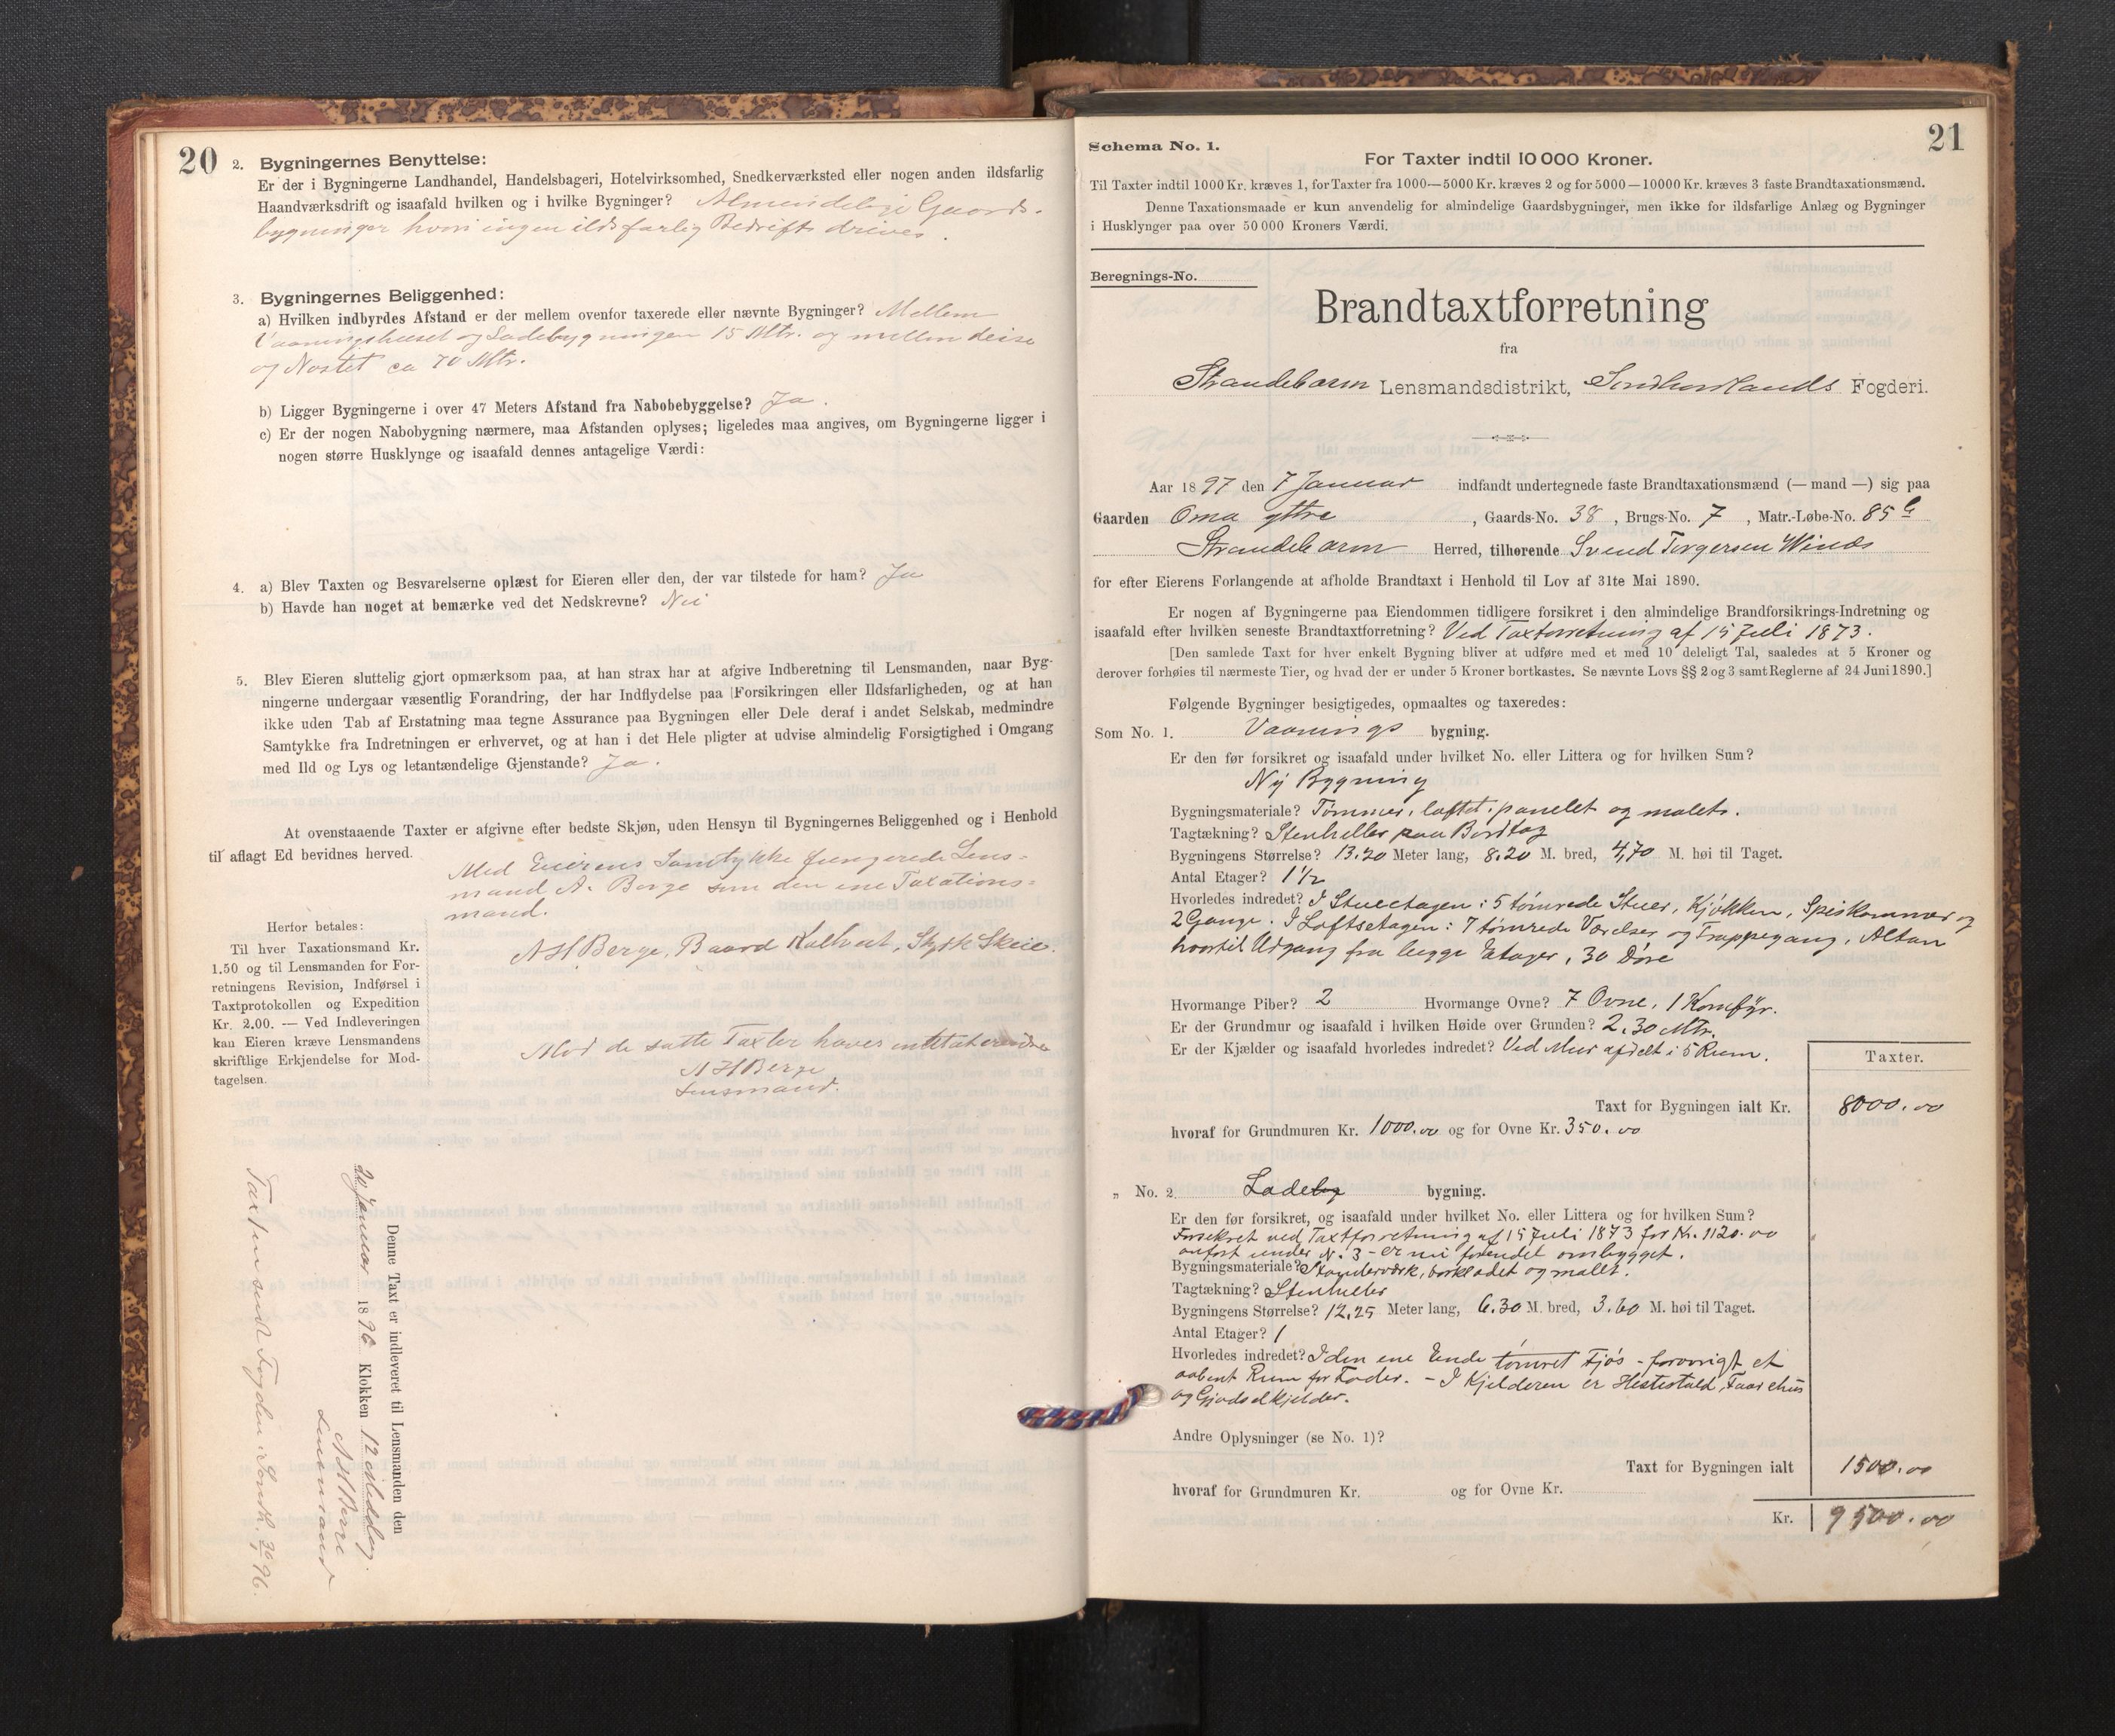 20
2. Bygningernes Benyttelse:
Er der i Bygningerne Landhandel, Handelsbageri, Hotelvirksomhed, Snedkerværksted eller nogen anden ildsfarlig
Haandværksdrift og isaafald hvilken og i hvilke Bygninger? Almindelige Gaards-
bygninger hvori ingen ildsfarlig Bedrift drives.
3. Bygningernes Beliggenhed:
a) Hvilken indbyrdes Afstand er der mellem ovenfor taxerede eller nævnte Bygninger? Mellem
Vaaningshuset og Ladebygningen 15 Mtr. og mellem disse
og Nostet ca 70 Mtr.
b) Ligger Bygningerne i over 47 Meters Afstand fra Nabobebyggelse? Ja.
c) Er der nogen Nabobygning nærmere, maa Afstanden oplyses; ligeledes maa angives, om Bygningerne ligger i
nogen større Husklynge og isaafald dennes antagelige Værdi:
4. a) Blev Taxten og Besvarelserne oplæst for Eieren eller den, der var tilstede for ham? Ja
b) Havde han noget at bemærke ved det Nedskrevne? Nei
5. Blev Eieren sluttelig gjort opmærksom paa, at han strax har at afgive Indberetning til Lensmanden, naar Byg-
ningerne undergaar væsentlig Forandring, der har Indflydelse paa Forsikringen eller Ildsfarligheden, og at han
ikke uden Tab af Erstatning maa tegne Assurance paa Bygningen eller Dele deraf i andet Selskab, medmindre
Samtykke fra Indretningen er erhvervet, og at han i det Hele pligter at udvise almindelig Forsigtighed i Omgang
med Ild og Lys og letantændelige Gjenstande? Ja.
At ovenstaaende Taxter er afgivne efter bedste Skjøn, uden Hensyn til Bygningernes Beliggenhed og i Henhold
til aflagt Ed bevidnes herved.
Med Eierens Samtykke fungerede Lens-
mand A. Berge som den ene Taxations-
mand.
A H Berge, Baard Kalhvat, Skeie.
Herfor betales:
Til hver Taxationsmand Kr.
1.50 og til Lensmanden for For-
retningens Revision, Indførsel i
Taxtprotokollen og Expedition
Kr. 2.00. — Ved Indleveringen
kan Eieren kræve Lensmandens
skriftlige Erkjendelse for Mod-
tagelsen.
Mod de satte Taxter haves intet at erindre
A H Berge
Lensmand.
Denne Taxt er indleveret til Lensmanden den
20 Januar 1896 Klokken 12 Middag.
A H Berge
Lensmand
Taxten sendt Fogden i Søndh. 30/1 96.
21
Schema No. 1.
For Taxter indtil 10 000 Kroner.
Til Taxter indtil 1000 Kr. kræves 1, for Taxter fra 1000—5000 Kr. kræves 2 og for 5000—10000 Kr. kræves 3 faste Brandtaxationsmænd.
Denne Taxationsmaade er kun anvendelig for almindelige Gaardsbygninger, men ikke for ildsfarlige Anlæg og Bygninger
i Husklynger paa over 50 000 Kroners Værdi.
Beregnings-No.
Brandtaxtforretning
fra
Strandebarm Lensmandsdistrikt, Søndhordlands Fogderi.
Aar 1897 den 7 Januar indfandt undertegnede faste Brandtaxationsmænd (— mand —) sig paa
Gaarden Oma yttre, Gaards-No. 38, Brugs-No. 7, Matr.-Løbe-No. 85 b
Strandebarm Herred, tilhørende Svend Torgersen Winæs
for efter Eierens Forlangende at afholde Brandtaxt i Henhold til Lov af 31te Mai 1890.
Er nogen af Bygningerne paa Eiendommen tidligere forsikret i den almindelige Brandforsikrings-Indretning og
isaafald efter hvilken seneste Brandtaxtforretning? Ved Taxtforretning af 15 Juli 1873.
[Den samlede Taxt for hver enkelt Bygning bliver at udføre med et med 10 deleligt Tal, saaledes at 5 Kroner og
derover forhøies til nærmeste Tier, og hvad der er under 5 Kroner bortkastes. Se nævnte Lovs §§ 2 og 3 samt Reglerne af 24 Juni 1890.]
Følgende Bygninger besigtigedes, opmaaltes og taxeredes:
Som No. 1. Vaanings bygning.
Er den før forsikret og isaafald under hvilket No. eller Littera og for hvilken Sum?
Ny Bygning
Bygningsmateriale? Tømmer, laftet, panelet og malet.
Tagtækning? Stenheller paa Bordtag
Bygningens Størrelse? 13.20 Meter lang, 8.20 M. bred, 4,70 M. høi til Taget.
Antal Etager? 1½
Hvorledes indredet? I Stueetagen: 5 tømrede Stuer, Kjøkken, Spiskammer og
2 Gange. I Loftsetagen: 7 tømrede Værelser og Trappegang, Altan
hvortil Udgang fra begge Etager, 30 Døre
Hvormange Piber? 2 Hvormange Ovne? 7 Ovne, 1 Komfyr.
Er der Grundmur og isaafald i hvilken Høide over Grunden? 2.30 Mtr.
Er der Kjælder og isaafald hvorledes indredet? Ved Mur afdelt i 5 Rum.
Taxter.
Taxt for Bygningen ialt Kr. 8000.00
hvoraf for Grundmuren Kr. 1000.00 og for Ovne Kr. 350.00
„ No. 2 Ladebyg bygning.
Er den før forsikret, og isaafald under hvilket No. eller Littera og for hvilken Sum?
Forsikret ved Taxtforretning af 15 Juli 1873 for Kr. 1120.00
anført under N. 3 - er nu forendet ombygget.
Bygningsmateriale? Stenderværk, bordklædet og malet.
Tagtækning? Stenheller
Bygningens Størrelse? 12.25 Meter lang, 6.30 M. bred, 3.60 M. høi til Taget.
Antal Etager? 1
Hvorledes indredet? I den ene Ende tømret Fjøs - forøvrigt et
aabent Rum for Foder. - I Kjelderen er Hestestald, Faarehus
og Gjødselkjelder.
Andre Oplysninger (se No. 1)?
Taxt for Bygningen ialt 1500.00
hvoraf for Grundmuren Kr. og for Ovne Kr.
Kr. 9500.00